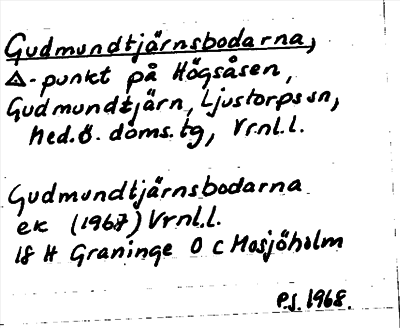 Gudmundtjärnsbodarna,
△-punkt på Högsåsen,
Gudmundtjärn, Ljustorps sn,
Med.ö. doms.tg, Vrnl.l.
Gudmundtjärnsbodarna
ek (1967) Vrnl.l.
18 H Graninge 0 c Mosjöholm
P.S. 1968.